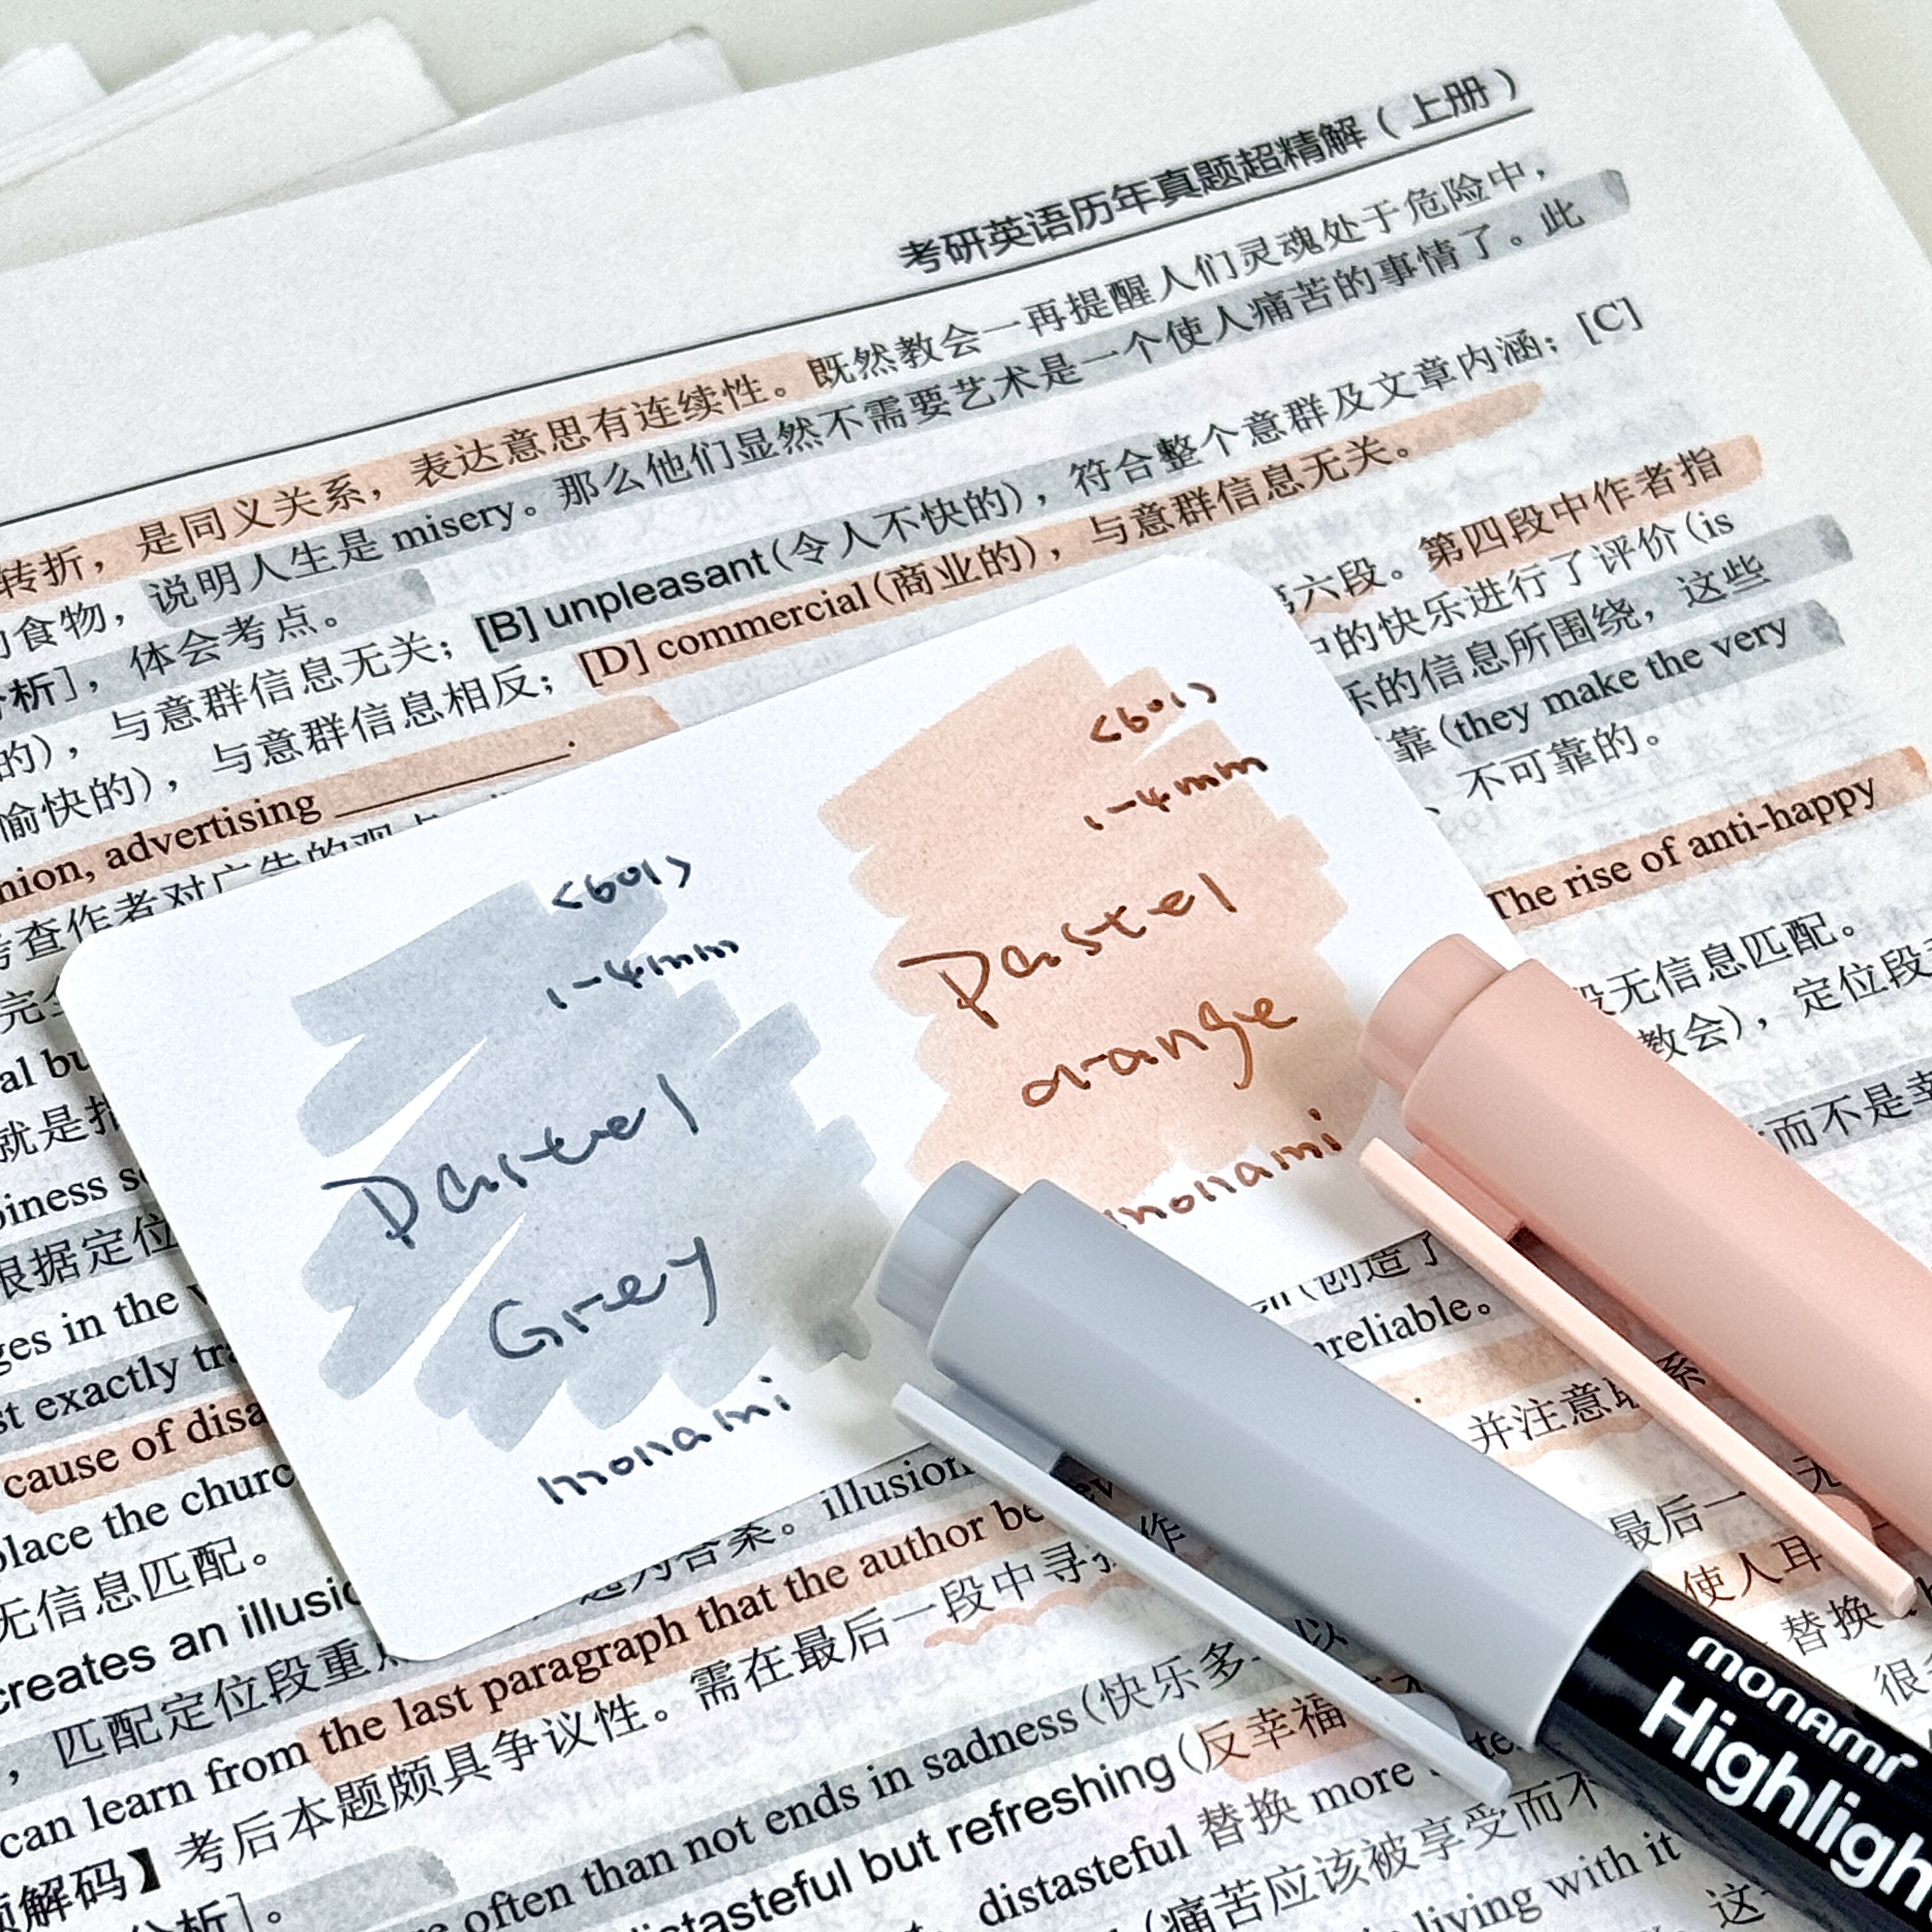 考研英语历年真题超精解（上册）
转折，是同义关系，表达意思有连续性。既然教会一再提醒人们灵魂处于危险中，
的食物，说明人生是 misery。那么他们显然不需要艺术是一个使人痛苦的事情了。此
分析]，体会考点。
的)，与意群信息无关；[B] unpleasant(令人不快的)，符合整个意群及文章内涵；[C]
愉快的)，与意群信息相反；[D] commercial(商业的)，与意群信息无关。
第六段。第四段中作者指
nion, advertising ________.
中的快乐进行了评价(is
考查作者对广告的观点
乐的信息所围绕，这些
靠(they make the very
，不可靠的。
The rise of anti-happy
段无信息匹配。
教会)，定位段
al bu
就是指
而不是幸
piness s
根据定位
ges in the v
(创造了
st exactly tra
unreliable。
cause of disa
并注意取
系
place the churc
无信息匹配。
为答案。illusion
最后一
creates an illusio
the last paragraph that the author believ
使人耳
，匹配定位段重点
作
替换
can learn from the last paragraph that the author believ
需在最后一段中寻找作
很
解码】考后本题颇具争议性。
以
分析]。
often than not ends in sadness(快乐多
distasteful but refreshing(反幸福
distasteful 替换 more
(痛苦应该被享受而不
living with it
这
<601>
1-4mm
Pastel
Grey
monami
<601>
1-4mm
Pastel
orange
monami
monami
Highligh